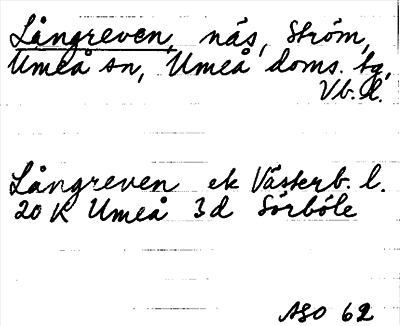 Långreven, näs, Ström,
Umeå sn, Umeå doms. tg,
Vb. l.
Långreven ek Västerb. l.
20 K Umeå 3 d Sörböle
ASO 62